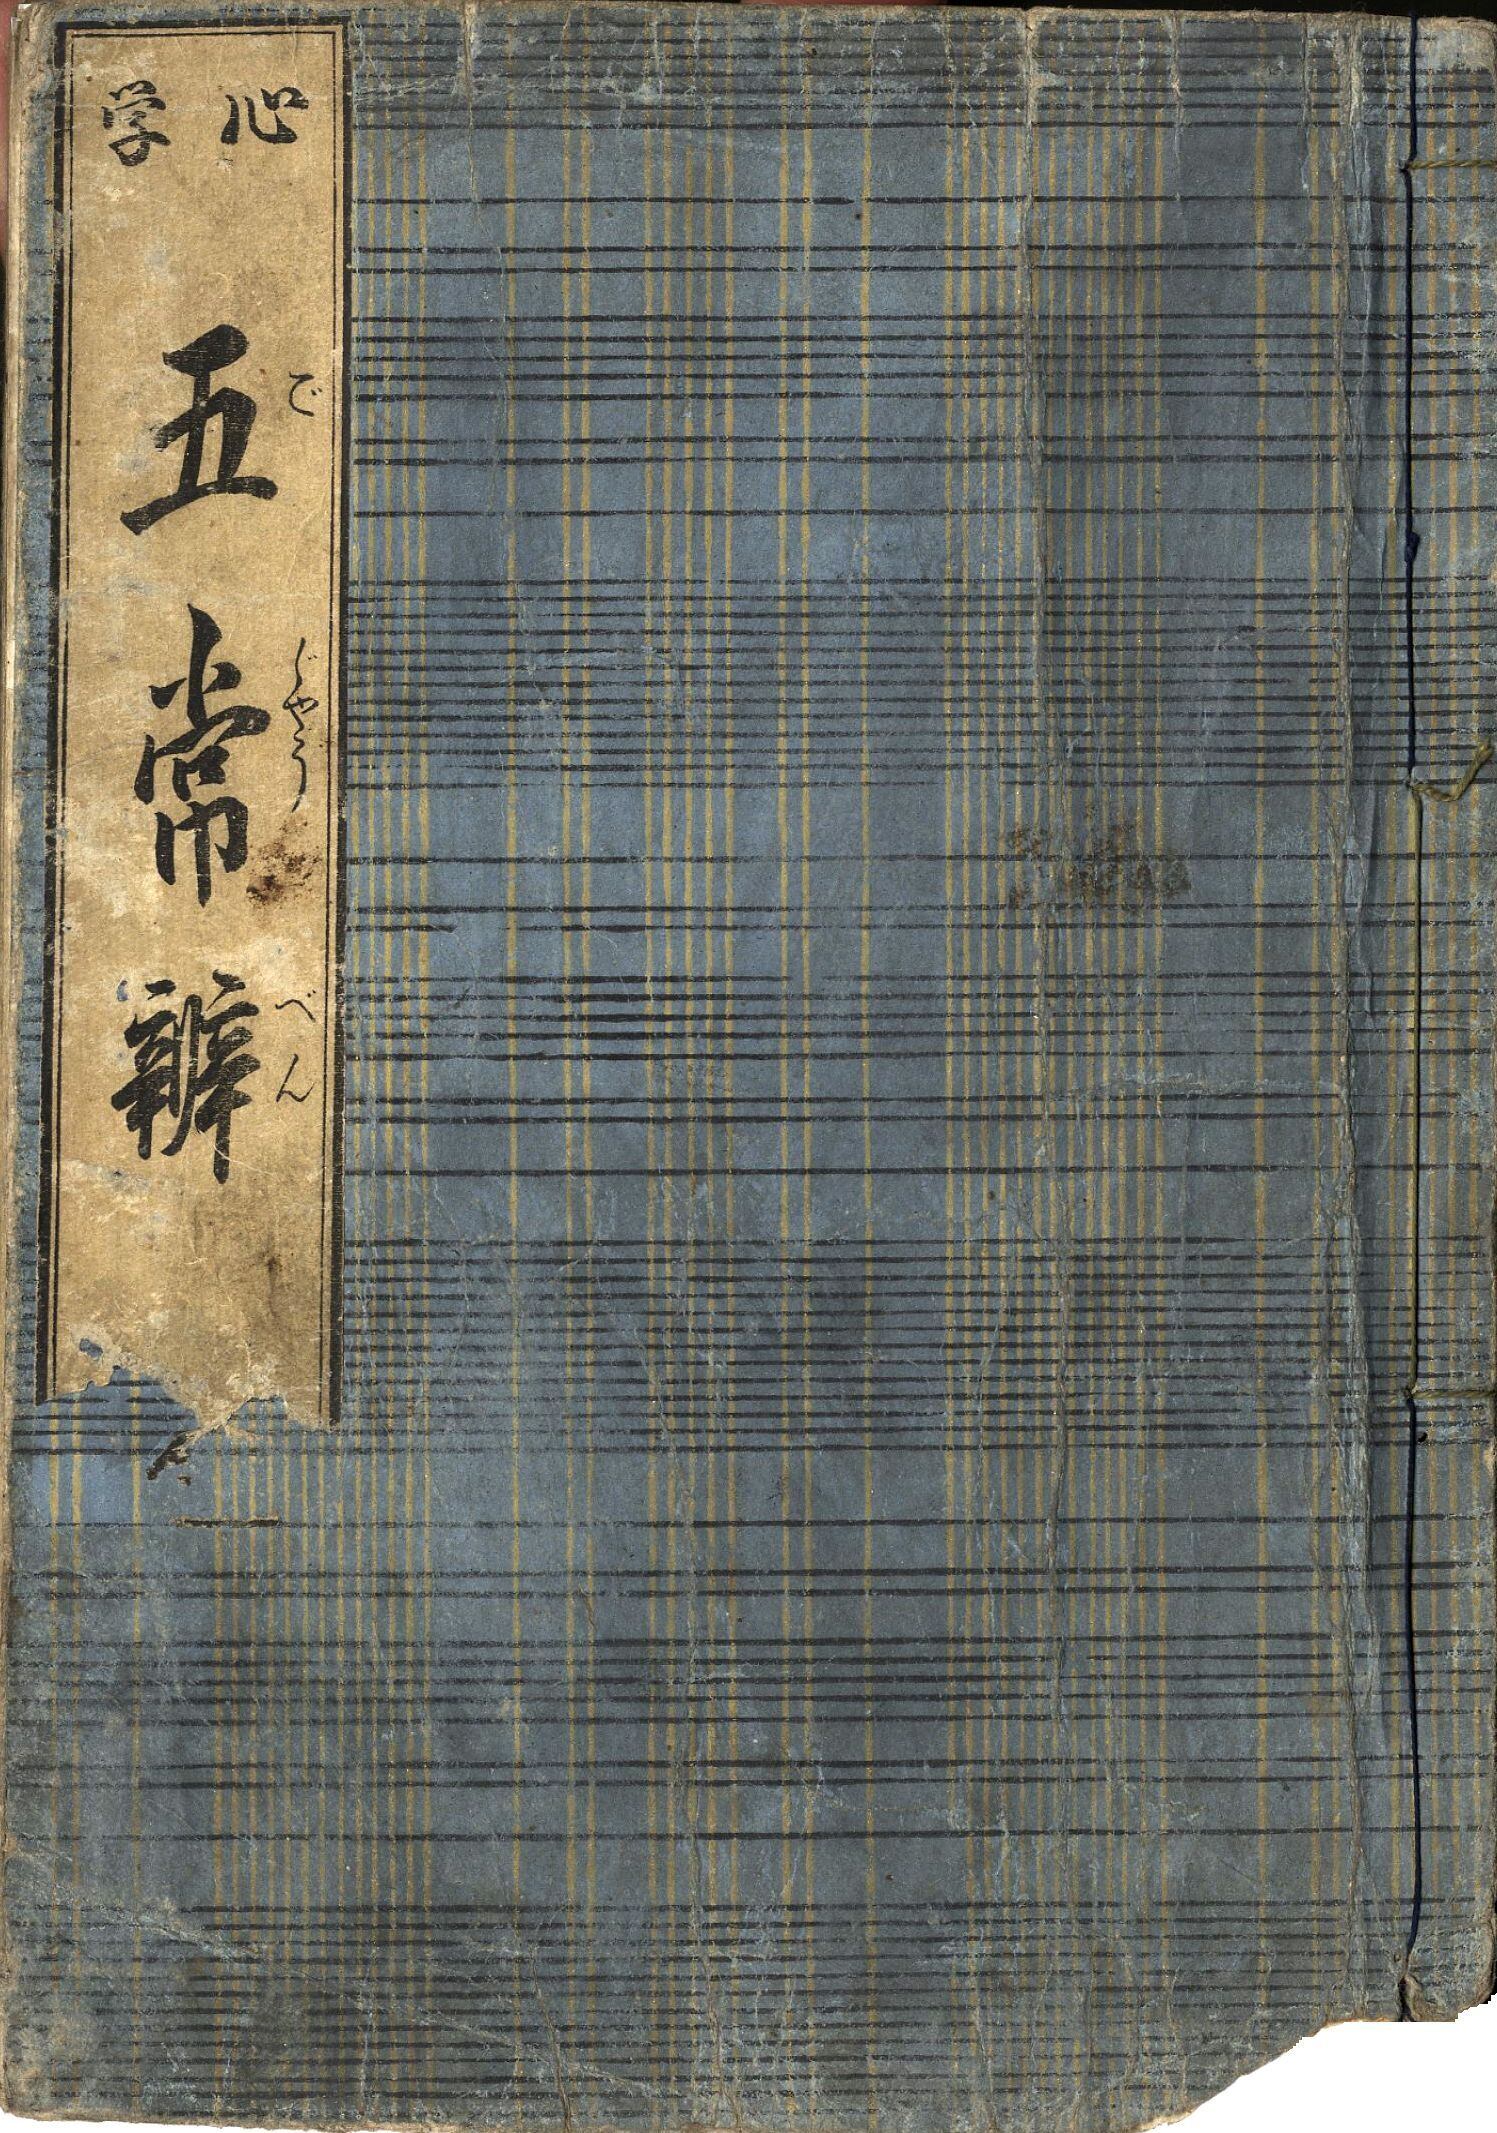 心学
五常辨
ごじやうべん